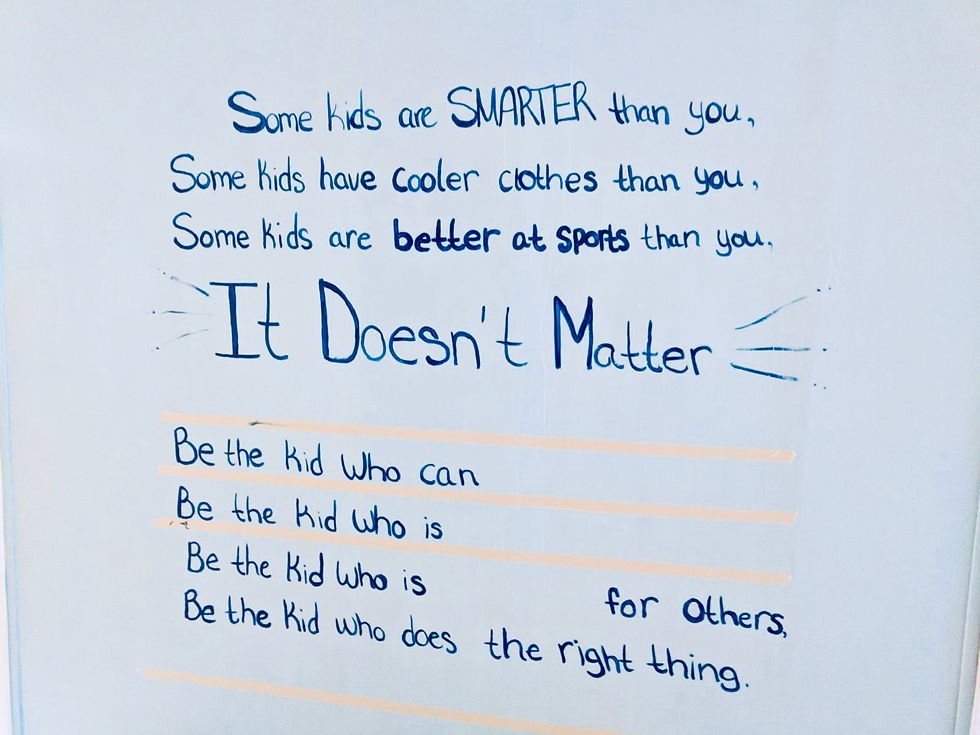 Some kids are SMARTER than you,
Some kids have cooler clothes than you,
Some kids are better at sports than you,
It Doesn't Matter
Be the kid who can
Be the kid who is
Be the kid who is for others,
Be the kid who does the right thing.